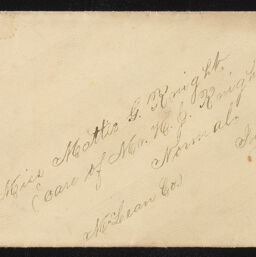 Miss Mattie G. Knight.
(care of Mr. H. J. Knight
Normal.
McLean Co)